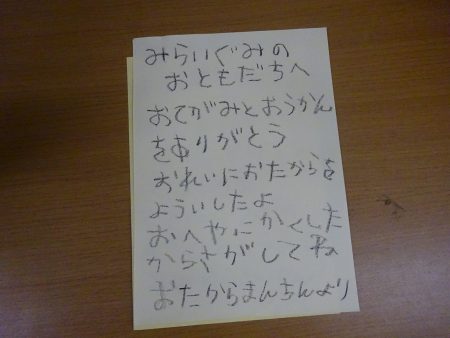 みらいぐみの
おともだちへ
おてがみとおうかん
をありがとう
おれいにおたからを
よういしたよ
おへやにかくした
からさがしてね
おたからまんちんより